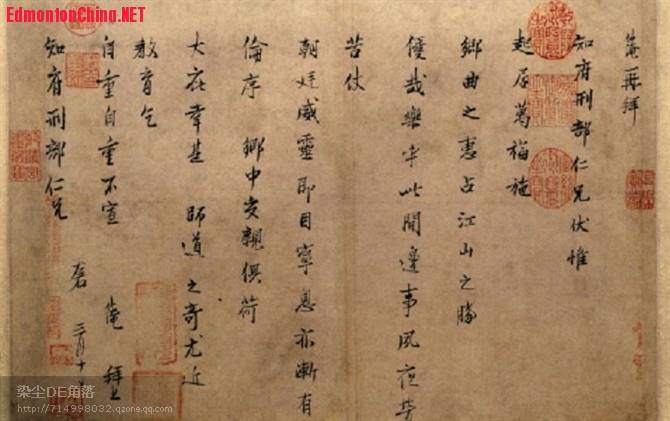 EdmontonChina.NET
淹再拜
知府刑部仁兄伏惟
起居萬福施
鄉曲之惠占江山之勝
優哉樂乎此間邊事夙夜勞
苦仗
朝廷威靈即目寧息亦漸有
倫序 鄉中交親俱荷
大庇幸甚 師道之奇尤近
教育乞
自重自重不宣 淹 拜上
知府刑部仁兄
三月十
染尘DE角落
http://714998032.qzone.qq.com